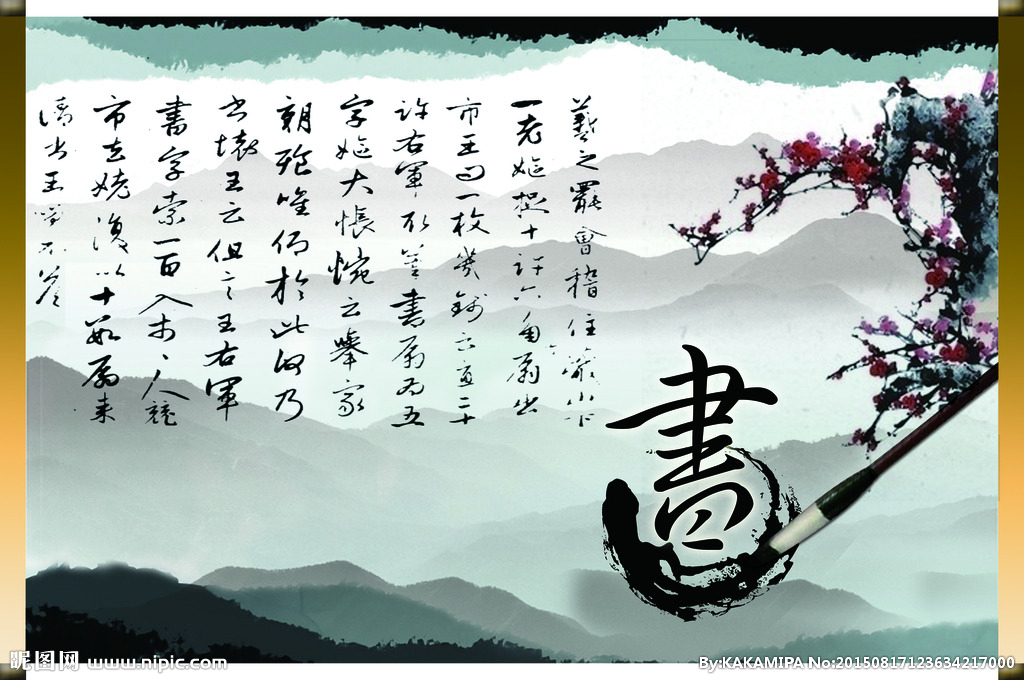 羲之罷會稽住蕺山下
一老嫗捉十許六角扇出
市王問一枚幾錢云直二十
許右軍取筆書扇為五
字嫗大悵惋云舉家
朝飧唯仰於此何乃
書壞王云但言王右軍
書字索一百入市〻人競
市去姥復以十數扇來
請書王笑不答
書
昵图网 www.nipic.com
By:KAKAMIPA No:20150817123634217000